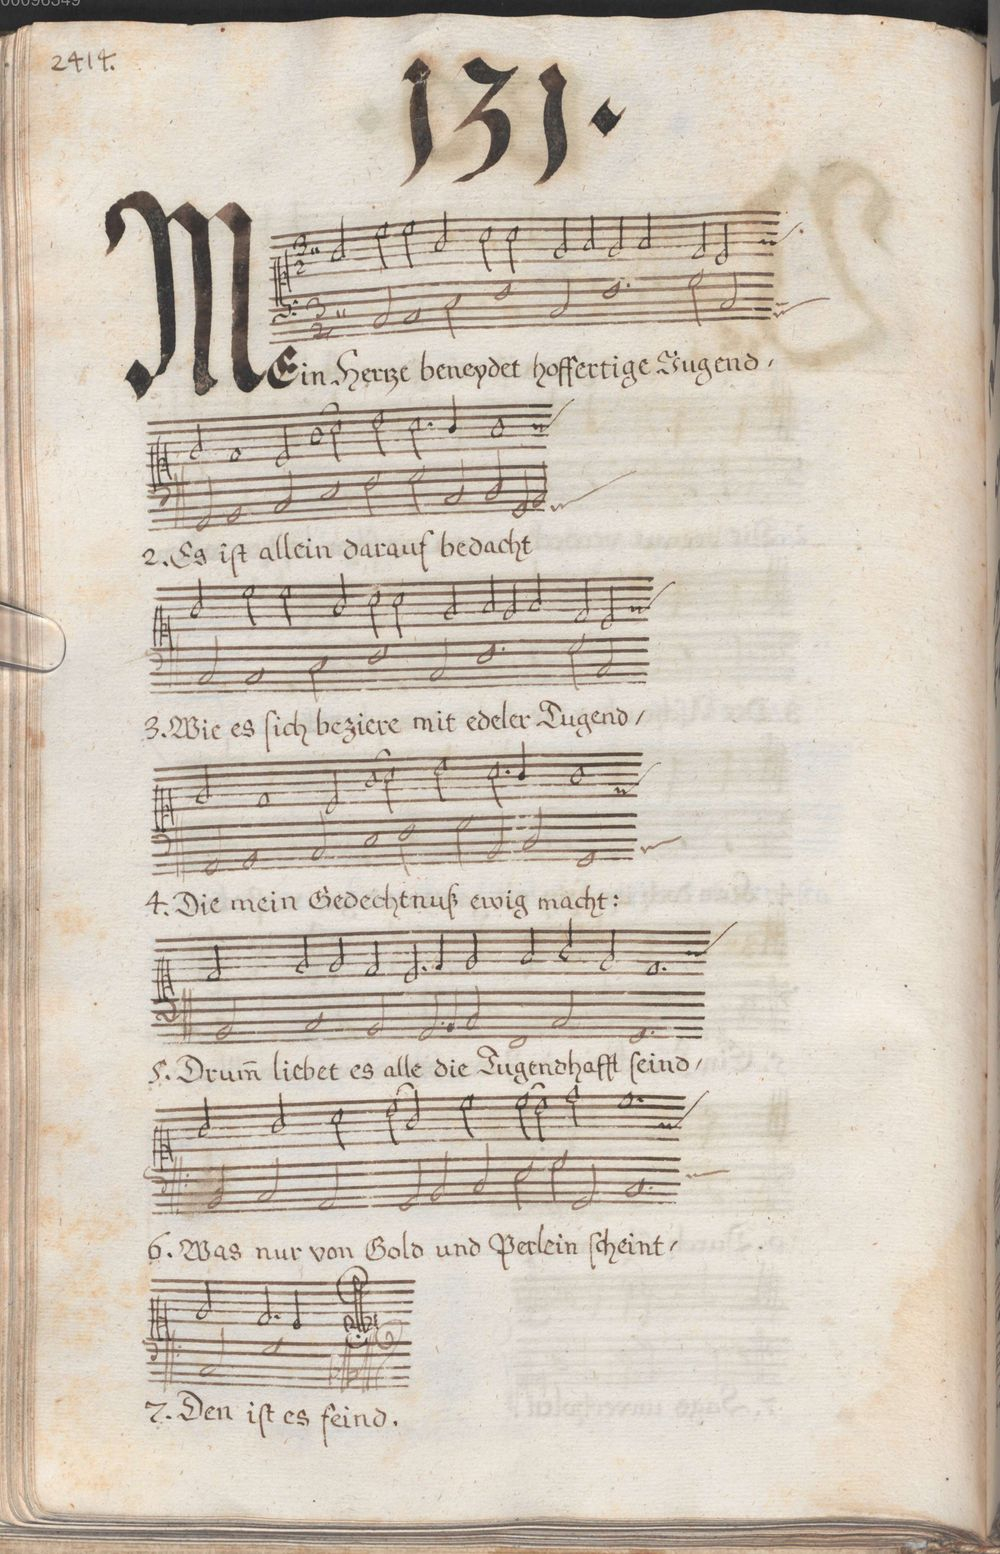 2414.
131.
MEin Hertze beneydet hoffertige Jugend,
2. Es ist allein darauf bedacht
3. Wie es sich beziere mit edeler Tugend,
4. Die mein Gedechtnuß ewig macht:
5. Drum̅ liebet es alle die Tugendhafft seind,
6. Was nur von Gold und Perlein scheint,
7. Den ist es feind.